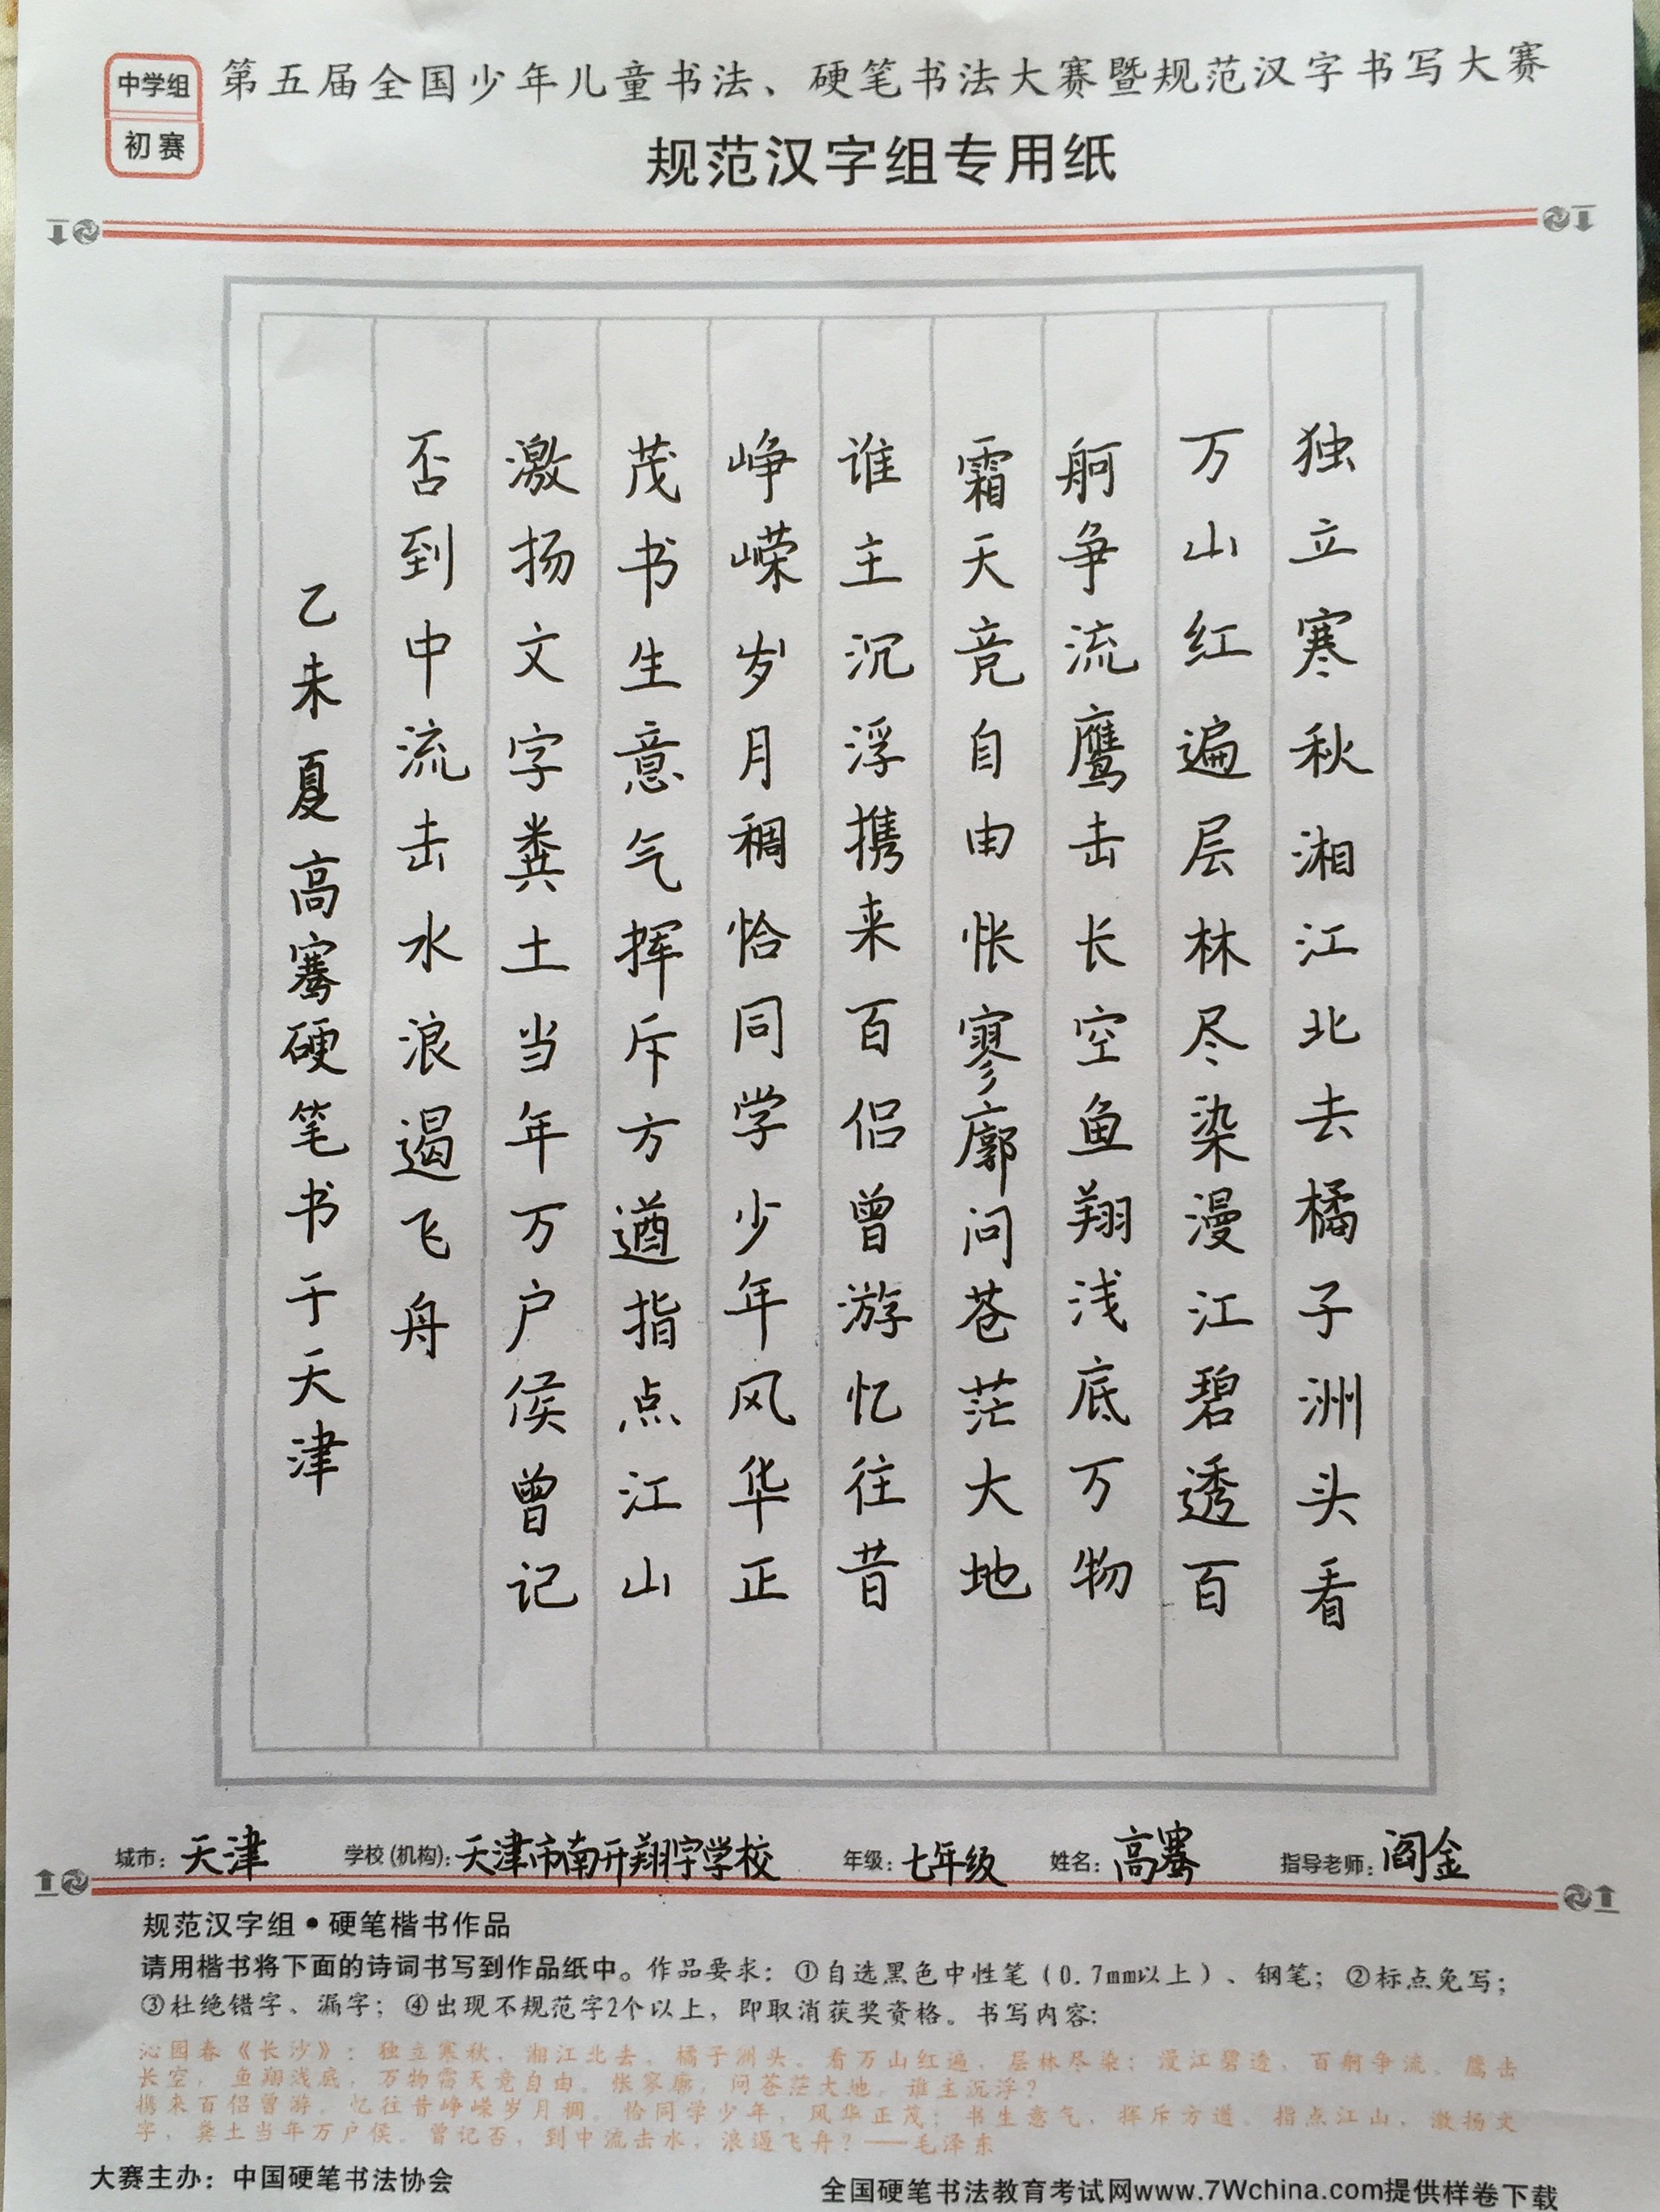 中学组
初赛
第五届全国少年儿童书法、硬笔书法大赛暨规范汉字书写大赛
规范汉字组专用纸
独立寒秋湘江北去橘子洲头看
万山红遍层林尽染漫江碧透百
舸争流鹰击长空鱼翔浅底万物
霜天竞自由怅寥廓问苍茫大地
谁主沉浮携来百侣曾游忆往昔
峥嵘岁月稠恰同学少年风华正
茂书生意气挥斥方遒指点江山
激扬文字粪土当年万户侯曾记
否到中流击水浪遏飞舟
乙未夏高骞硬笔书于天津
城市：天津 学校(机构)：天津市南开翔宇学校 年级：七年级 姓名：高骞 指导老师：阎金
规范汉字组•硬笔楷书作品
请用楷书将下面的诗词书写到作品纸中。作品要求：①自选黑色中性笔（0.7mm以上）、钢笔；②标点免写；
③杜绝错字、漏字；④出现不规范字2个以上，即取消获奖资格。书写内容：
沁园春《长沙》：独立寒秋，湘江北去，橘子洲头。看万山红遍，层林尽染；漫江碧透，百舸争流。鹰击
长空，鱼翔浅底，万物霜天竞自由。怅寥廓，问苍茫大地，谁主沉浮？
携来百侣曾游。忆往昔峥嵘岁月稠。恰同学少年，风华正茂；书生意气，挥斥方遒。指点江山，激扬文
字，粪土当年万户侯。曾记否，到中流击水，浪遏飞舟？——毛泽东
大赛主办：中国硬笔书法协会
全国硬笔书法教育考试网www.7Wchina.com提供样卷下载